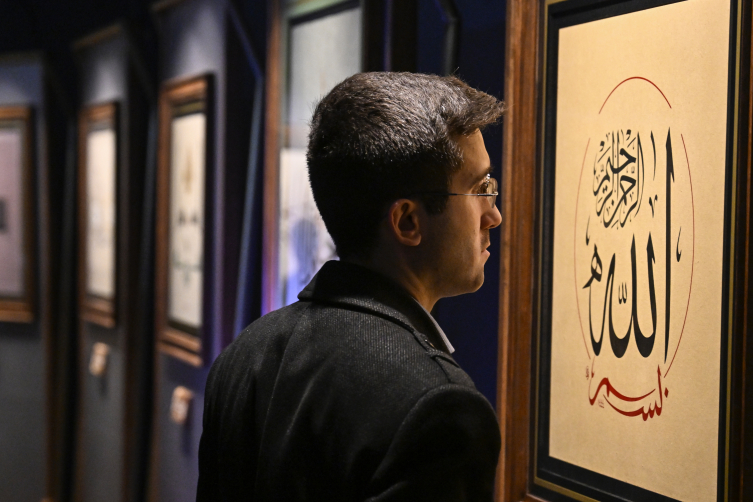 بسم
الله
الرحمن الرحيم